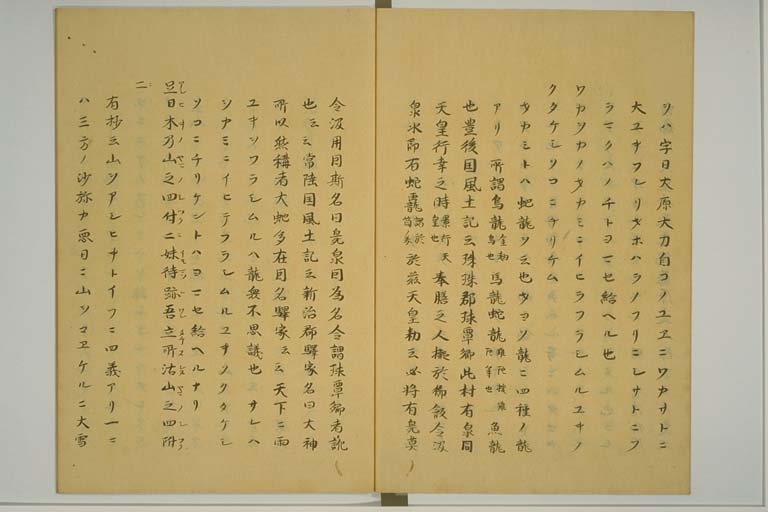 ツハ字曰大原大刀自コノユヱニワカサトニ
大ユキフレリオホハラノフリニシサトニフ
ラマクハノチトヨマセ給ヘル也
ワカヲカノオカミニイヒテフラシムルユキノ
クタケシソコニチリケム
オカミトハ蛇龍ヲ云也オヨソ龍ニ四種ノ龍
アリ 所謂鳥龍 馬龍蛇龍 魚龍
也豊後国風土記云珠珠郡珠覃郷此村有泉同
天皇行幸之時 奉膳之人擬於御飯令汲
泉水即有蛇龗 於茲天皇勅云必将有臭莫
令汲用因斯名曰臭泉因為名今謂珠覃郷者訛
也云云常陸国風土記云新治郡驛家名曰大神
所以然稱者大蛇多在因名驛家云云天下ニ雨
ユキヲフラシムルハ龍衆不思議也 サレハ
ヲカミニイヒテフラシムルユキノクタケシ
ソコニチリケントハヨマセ給ヘルナリ
旦日木乃山之四付二妹待跡吾立所沾山之四附
二
有抄云山ヲアシヒキナトイフニ四義アリ一ニ
ハ三方ノ沙弥カ悪日ニ山ヲコエケルニ大雪